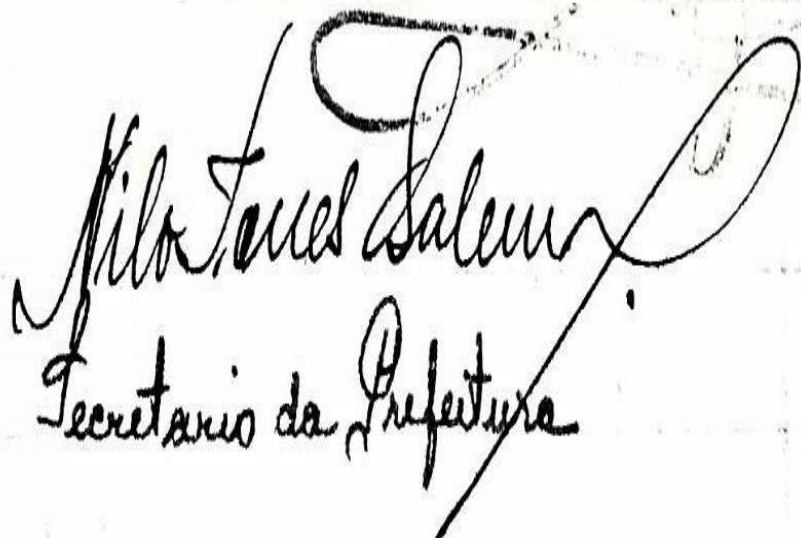 Nilo Torres Salem
Secretario da Prefeitura